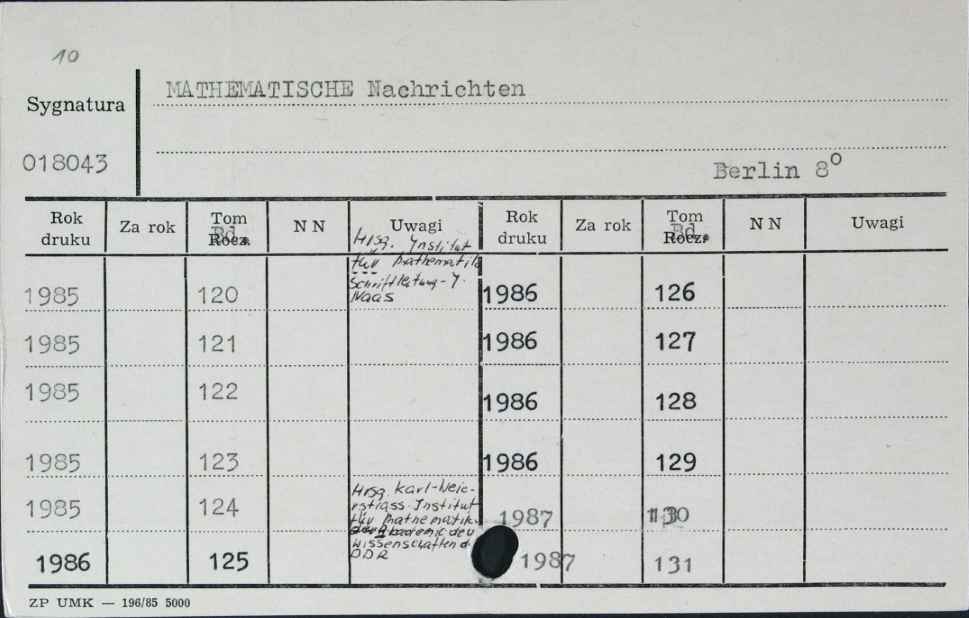 10
Sygnatura
MATHEMATISCHE Nachrichten
018043
Berlin 8⁰
Rok druku Za rok Tom Bd. Rocz. N N Uwagi Rok druku Za rok Tom Bd. Rocz. N N Uwagi
Hrsg. Institut
für Mathematik
Schriftleitung - J.
Naas
1985 120 1986 126
1985 121 1986 127
1985 122 1986 128
1985 123 1986 129
Hrsg Karl-Weie-
rstrass-Institut
für Mathematik
der Akademie der
Wissenschaften d.
DDR
1985 124 1987 130
1986 125 1987 131
ZP UMK — 196/85 5000